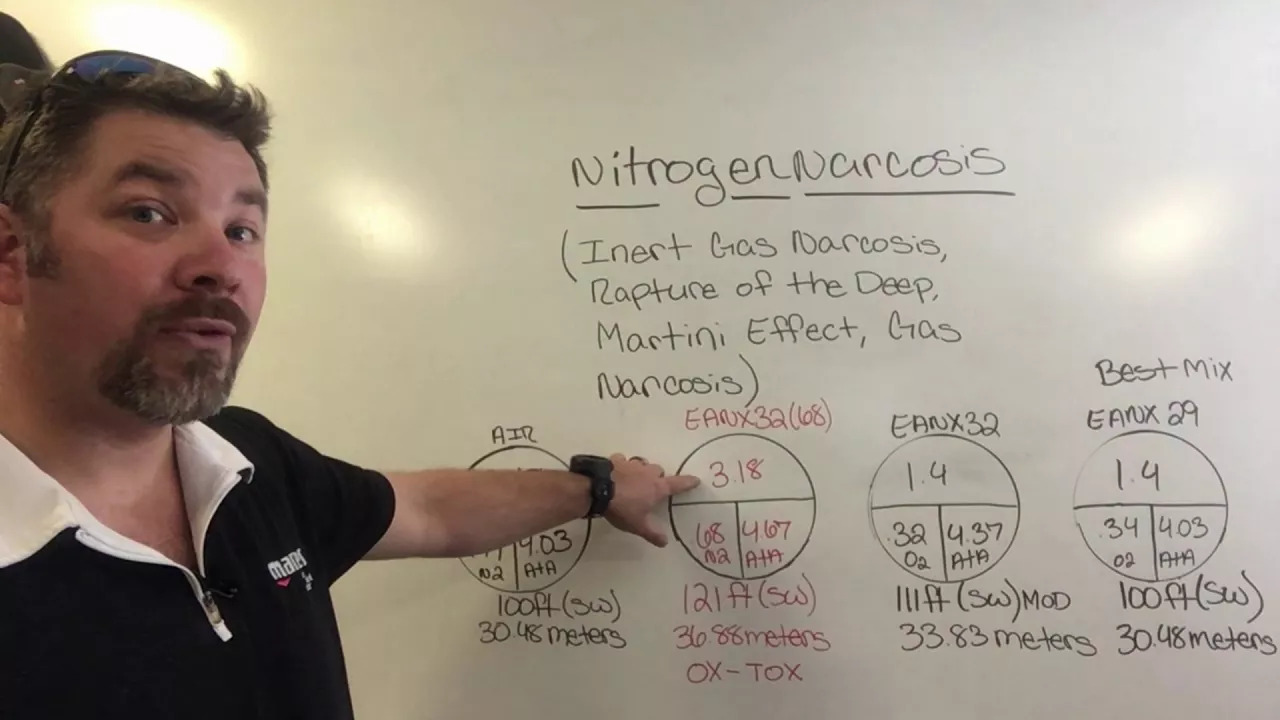 Nitrogen Narcosis
(Inert Gas Narcosis,
Rapture of the Deep,
Martini Effect, Gas
Narcosis)
AIR
4.03
N2
ATA
100ft(SW)
30.48 meters
EANX32(68)
3.18
.68
N2
4.67
ATA
121ft(SW)
36.88 meters
OX-TOX
EANX32
1.4
.32
O2
4.37
ATA
111ft(SW) MOD
33.83 meters
Best Mix
EANX 29
1.4
.34
O2
4.03
ATA
100ft(SW)
30.48 meters
mares